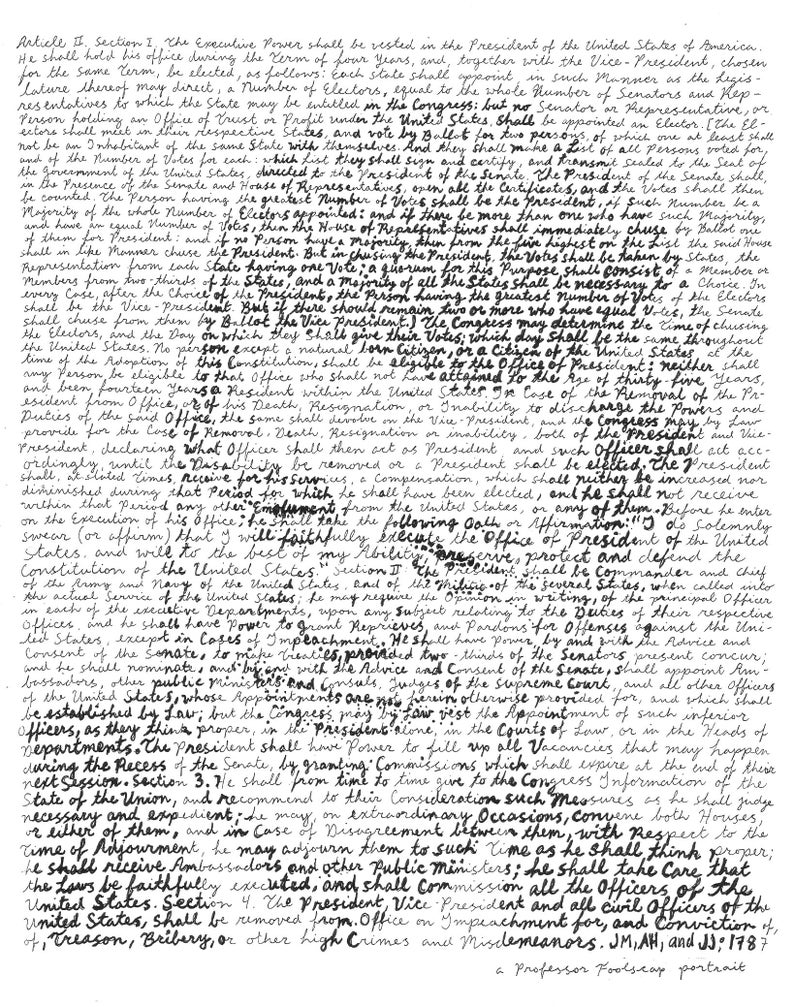 Article II. Section I. The Executive Power shall be vested in the President of the United States of America.
He shall hold his office during the Term of four Years, and, together with the Vice-President, chosen
for the same Term, be elected, as follows: Each State shall appoint, in such Manner as the Legis-
lature thereof may direct, a Number of Electors, equal to the whole Number of Senators and Rep-
resentatives to which the State may be entitled in the Congress: but no Senator or Representative, or
Person holding an Office of Trust or Profit under the United States, shall be appointed an Elector. [The El-
ectors shall meet in their respective States, and vote by Ballot for two persons, of which one at least shall
not be an Inhabitant of the same State with themselves. And they shall make a List of all Persons voted for,
and of the Number of Votes for each: which List they shall sign and certify, and transmit sealed to the Seat of
the Government of the United States, directed to the President of the Senate. The President of the Senate shall,
in the Presence of the Senate and House of Representatives, open all the Certificates, and the Votes shall then
be counted. The Person having the greatest Number of Votes shall be the President, if such Number be a
Majority of the whole Number of Electors appointed: and if there be more than one who have such Majority,
and have an equal Number of Votes, then the House of Representatives shall immediately chuse by Ballot one
of them for President: and if no Person have a Majority, then from the five highest on the List the said House
shall in like Manner chuse the President. But in chusing the President, the Votes shall be taken by States, the
Representation from each State having one Vote; a quorum for this Purpose shall consist of a Member or
Members from two-thirds of the States, and a Majority of all the States shall be necessary to a Choice. In
every Case, after the Choice of the President, the Person having the greatest Number of Votes of the Electors
shall be the Vice-President. But if there should remain two or more who have equal Votes, the Senate
shall chuse from them by Ballot the Vice President.] The Congress may determine the Time of chusing
the Electors, and the Day on which they shall give their Votes; which day shall be the same throughout
the United States. No person except a natural born Citizen, or a Citizen of the United States, at the
time of the Adoption of this Constitution, shall be eligible to the Office of President: neither shall
any Person be eligible to that Office who shall not have attained to the Age of thirty-five Years,
and been fourteen Years a Resident within the United States. In Case of the Removal of the Pr-
esident from Office, or of his Death, Resignation, or Inability to discharge the Powers and
Duties of the said Office, the same shall devolve on the Vice-President, and the Congress may by Law
provide for the Case of Removal, Death, Resignation or inability, both of the President and Vice-
President, declaring what Officer shall then act as President and such Officer shall act acc-
ordingly, until the Disability be removed or a President shall be elected. The President
shall, at stated Times, receive for his Services, a Compensation, which shall neither be increased nor
diminished during that Period for which he shall have been elected, and he shall not receive
within that Period any other Emolument from the United States, or any of them. Before he enter
on the Execution of his Office, he shall take the following Oath or Affirmation: "I do solemnly
swear (or affirm) that I will faithfully execute the Office of President of the United
States, and will to the best of my Ability, preserve, protect and defend the
Constitution of the United States." Section II The President shall be Commander and chief
of the Army and Navy of the United States, and of the Militia of the several States, when called into
the actual Service of the United States; he may require the Opinion in writing, of the principal Officer
in each of the executive Departments, upon any subject relating to the Duties of their respective
Offices, and he shall have Power to grant Reprieves, and Pardons for Offenses against the Uni-
ted States, except in Cases of Impeachment. He shall have Power, by and with the Advice and
Consent of the Senate, to make Treaties, provided two-thirds of the Senators present concur;
and he shall nominate, and by and with the Advice and Consent of the Senate, shall appoint Am-
bassadors, other public Ministers and Consuls, Judges of the Supreme Court, and all other Officers
of the United States, whose Appointments are not herein otherwise provided for, and which shall
be established by Law; but the Congress may by Law vest the Appointment of such inferior
Officers, as they think proper, in the President alone, in the Courts of Law, or in the Heads of
Departments. The President shall have Power to fill up all Vacancies that may happen
during the Recess of the Senate, by granting Commissions which shall expire at the end of their
next Session. Section 3. He shall from time to time give to the Congress Information of the
State of the Union, and recommend to their Consideration such Measures as he shall judge
necessary and expedient; he may, on extraordinary Occasions, convene both Houses,
or either of them, and in Case of Disagreement between them, with Respect to the
Time of Adjourment, he may adjourn them to such Time as he shall think proper;
he shall receive Ambassadors and other Public Ministers; he shall take Care that
the Laws be faithfully executed, and shall Commission all the Officers of the
United States. Section 4. The President, Vice-President and all civil Officers of the
United States, shall be removed from Office on Impeachment for, and Conviction of,
of, Treason, Bribery, or other high Crimes and Misdemeanors. JM, AH, and JJ; 1787
a Professor Foolscap portrait